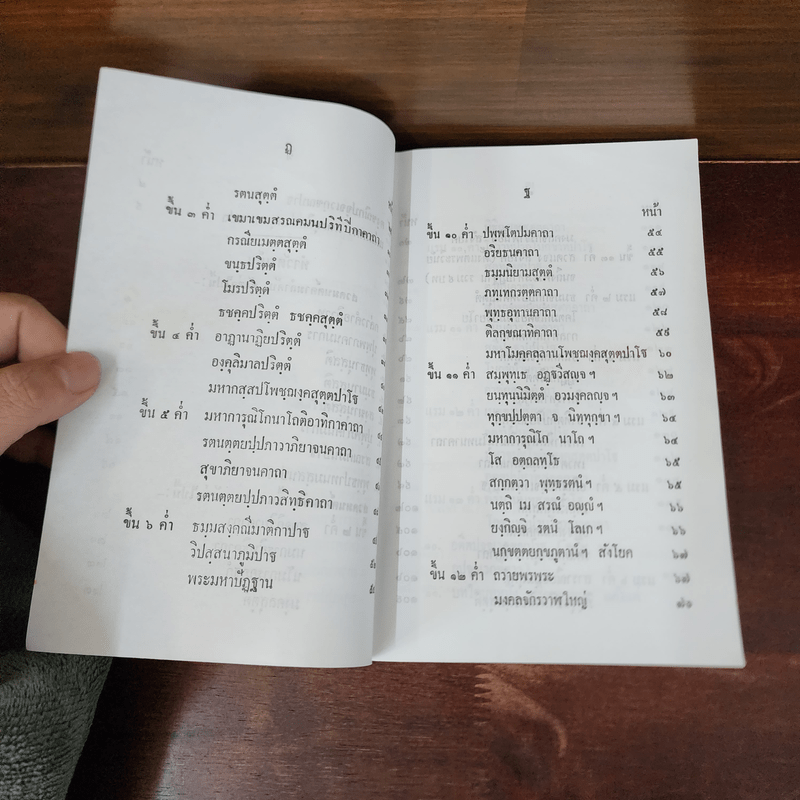 ฏ
รตนสุตฺตํ
ขึ้น ๓ ค่ำ เขมาเขมสรณคมนปริทีปิกาคาถา
กรณียเมตฺตสุตฺตํ
ขนฺธปริตฺตํ
โมรปริตฺตํ
ธชคฺคปริตฺตํ ธชคฺคสุตฺตํ
ขึ้น ๔ ค่ำ อาฏานาฏิยปริตฺตํ
องฺคุลิมาลปริตฺตํ
มหากสฺสปโพชฺฌงฺคสุตฺตปาโฐ
ขึ้น ๕ ค่ำ มหาการุณิโกนาโถติอาทิกาคาถา
รตนตฺตยปฺปภาวาภิยาจนคาถา
สุขาภิยาจนคาถา
รตนตฺตยปฺปภาวสิทฺธิคาถา
ขึ้น ๖ ค่ำ ธมฺมสงฺคณีมาติกาปาฐ
วิปสฺสนาภูมิปาฐ
พระมหาปัฏฐาน
ฐ
หน้า
ขึ้น ๑๐ ค่ำ ปพฺพโตปมคาถา ๕๔
อริยธนคาถา ๕๕
ธมฺมนิยามสุตฺตํ ๕๖
ภทฺเทกรตฺตคาถา ๕๗
พุทฺธอุทานคาถา ๕๘
ติลกฺขณาทิคาถา ๕๙
มหาโมคฺคลฺลานโพชฺฌงฺคสุตฺตปาโฐ ๖๐
ขึ้น ๑๑ ค่ำ สมฺพุทฺเธ อฏฺฐวีสญฺจ ฯ ๖๒
ยนฺทุนฺนิมิตฺตํ อวมงฺคลญฺจ ฯ ๖๓
ทุกฺขปฺปตฺตา จ นิทฺทุกฺขา ฯ ๖๔
มหาการุณิโก นาโถ ฯ ๖๔
โส อตฺถลทฺโธ ๖๕
สกฺกตฺวา พุทฺธรตนํ ฯ ๖๕
นตฺถิ เม สรณํ อญฺญํ ฯ ๖๖
ยงฺกิญฺจิ รตนํ โลเก ฯ ๖๖
นกฺขตฺตยกฺขภูตานํ ฯ สังโยค ๖๗
ขึ้น ๑๒ ค่ำ ถวายพรพระ ๖๗
มงคลจักรวาฬใหญ่ ๗๑